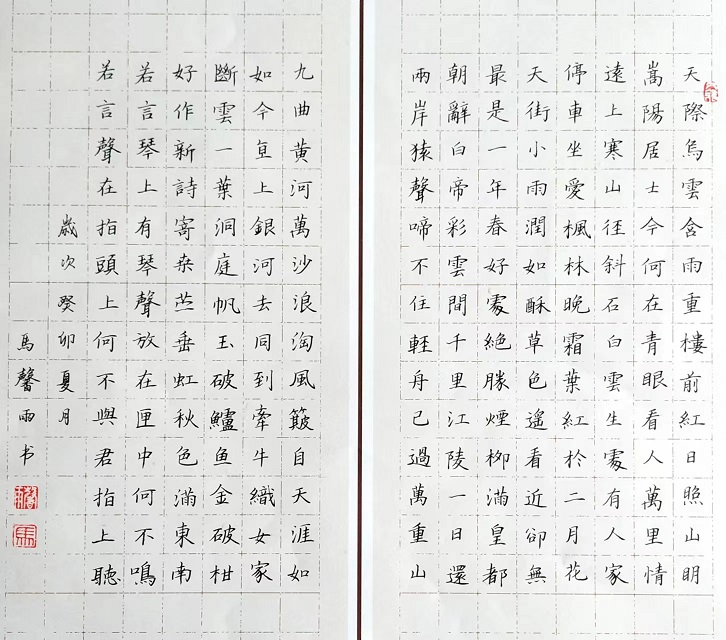 天際烏雲含雨重樓前紅日照山眀
嵩陽居士今何在青眼看人萬里情
遠上寒山徑斜石白雲生處有人家
停車坐愛楓林晚霜葉紅於二月花
天街小雨潤如酥草色遙看近卻無
最是一年春好處絕勝煙柳滿皇都
朝辭白帝彩雲間千里江陵一日還
兩岸猿聲啼不住輕舟已過萬重山
九曲黄河萬沙浪淘風簸自天涯如
如今直上銀河去同到牽牛織女家
斷雲一葉洞庭帆玉破鱸鱼金破柑
好作新詩寄桑苎垂虹秋色滿東南
若言琴上有琴聲放在匣中何不鳴
若言聲在指頭上何不與君指上聽
歲次癸卯夏月
馬馨雨书